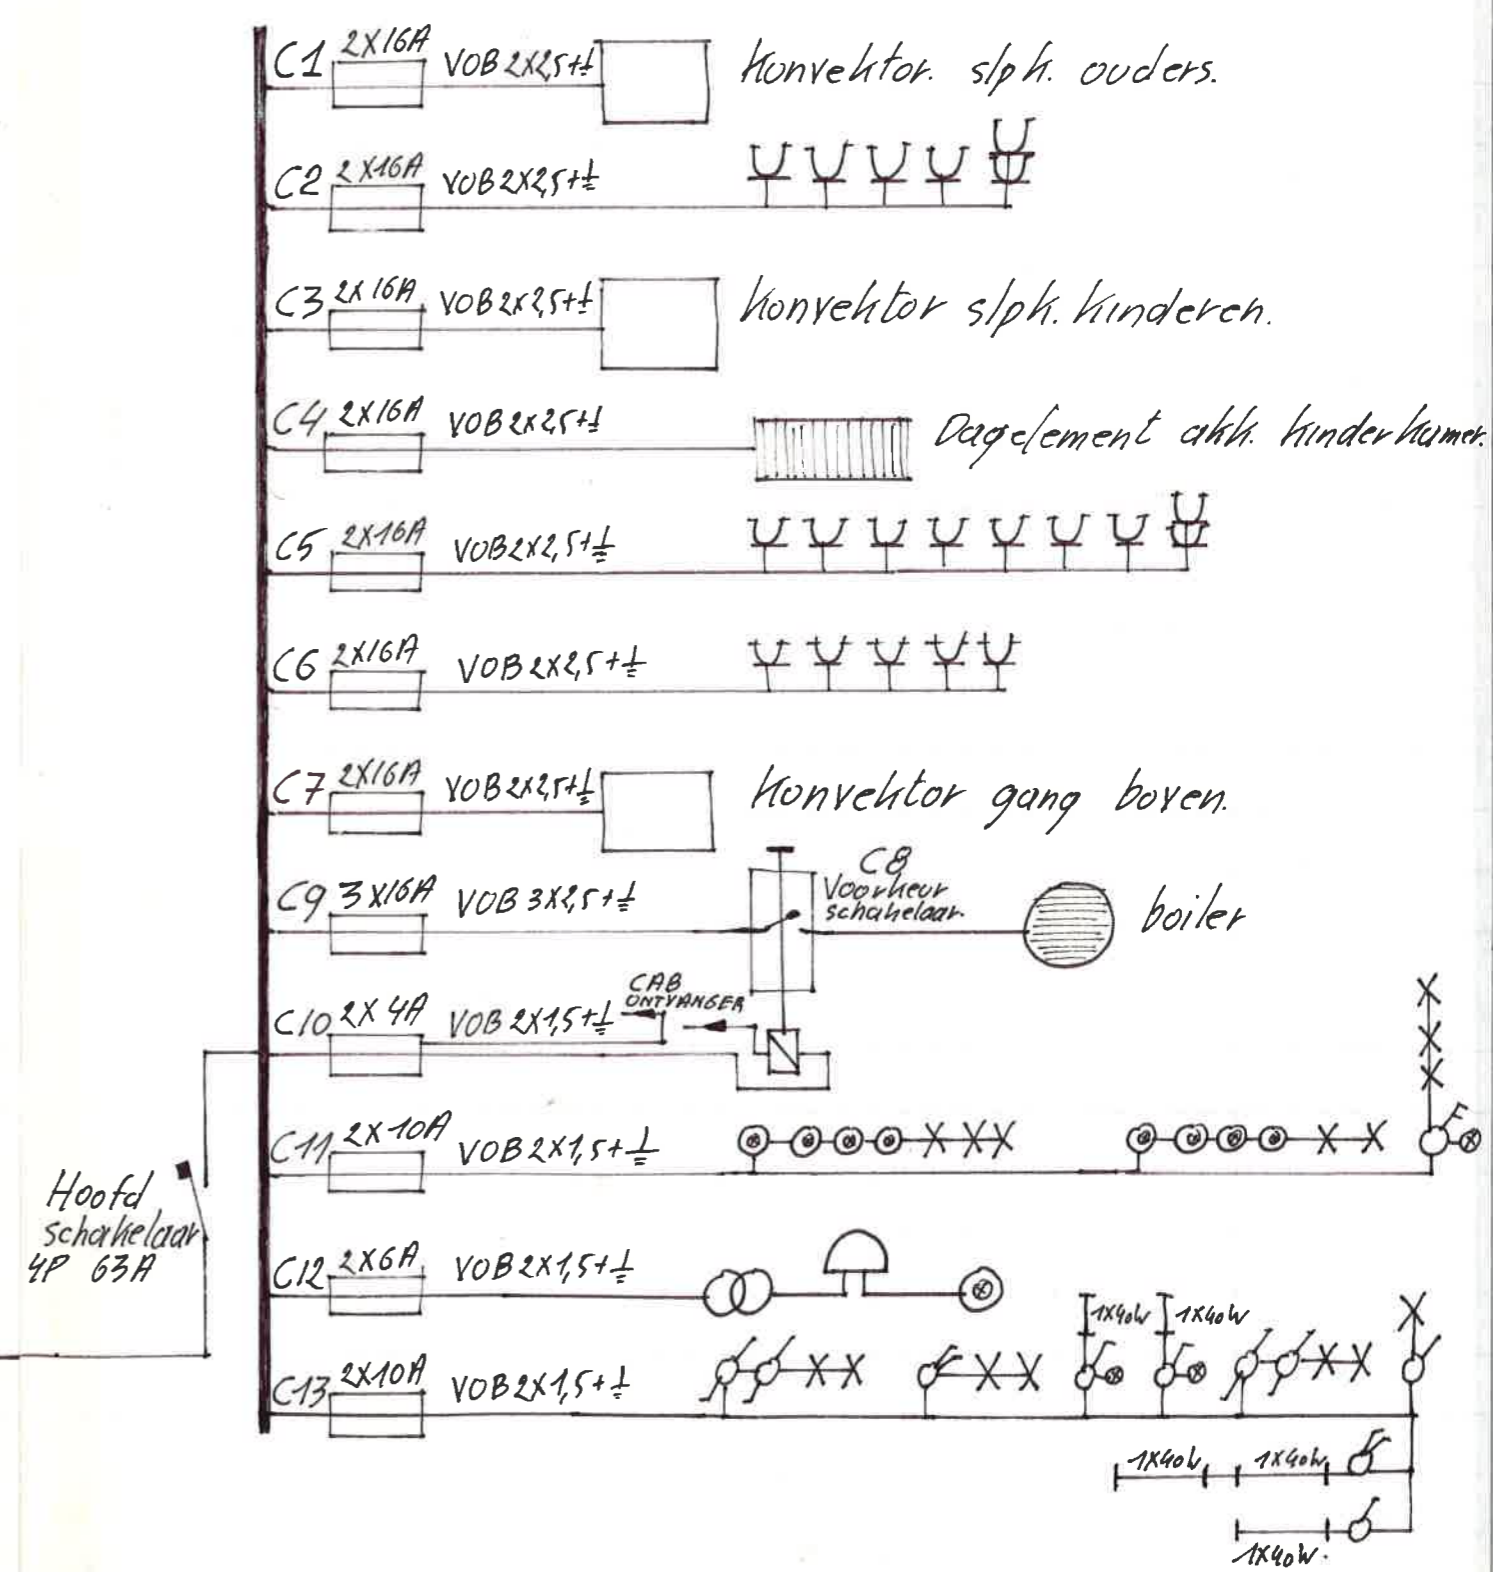 C1 2X16A VOB 2X2,5+⏚ Konvektor. slpk. ouders.
C2 2X16A VOB 2X2,5+⏚
C3 2X16A VOB 2X2,5+⏚ Konvektor slpk. kinderen.
C4 2X16A VOB 2X2,5+⏚ Dagelement akk. kinderkamer.
C5 2X16A VOB 2X2,5+⏚
C6 2X16A VOB 2X2,5+⏚
C7 2X16A VOB 2X2,5+⏚ Konvektor gang boven.
C8
Voorkeur
schakelaar.
C9 3X16A VOB 3X2,5+⏚ boiler
CAB
ONTVANGER
C10 2X4A VOB 2X1,5+⏚
C11 2X10A VOB 2X1,5+⏚
Hoofd
schakelaar
4P 63A
C12 2X6A VOB 2X1,5+⏚
1X40W 1X40W
C13 2X10A VOB 2X1,5+⏚
1X40W 1X40W
1X40W.